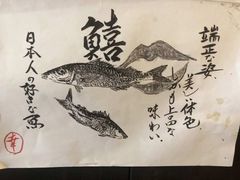 鱚
端正な姿
美しい体色
しかも上品な
味わい
日本人の好きな魚
幸